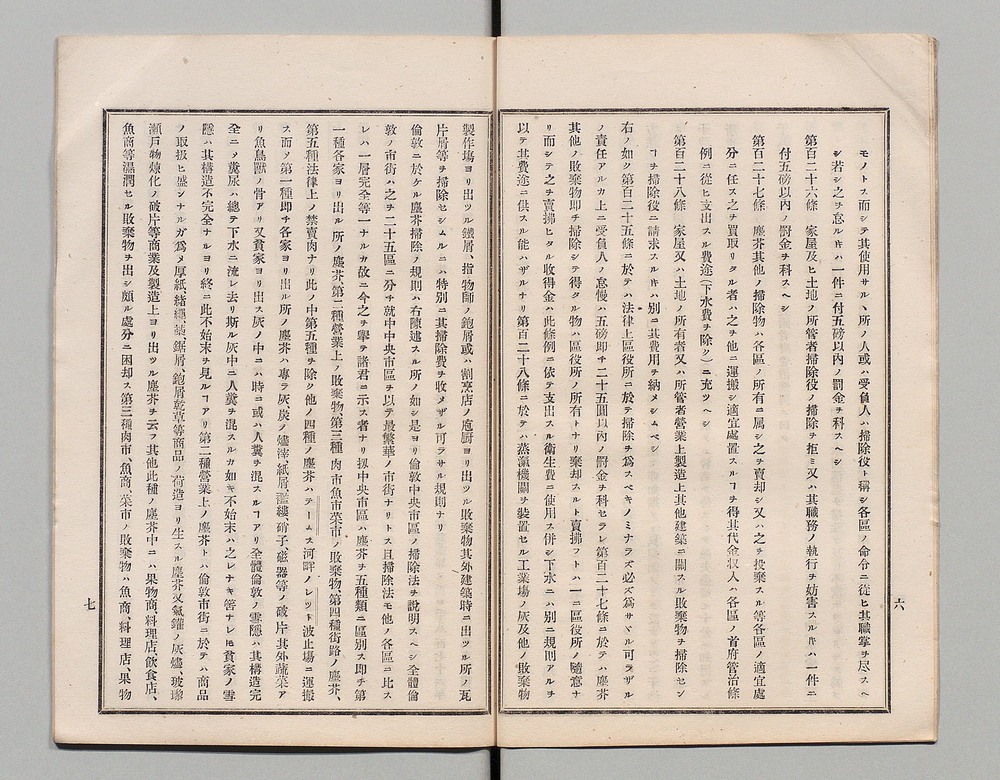 モノトス而シテ其使用サルヽ所ノ人或ハ受負人ハ掃除役ト稱シ各區ノ命令ニ從ヒ其職掌ヲ尽スヘ
シ若シ之ヲ怠ルキハ一件ニ付五磅以內ノ罰金ヲ科スヘシ
第百二十六條 家屋及ヒ土地ノ所管者掃除役ノ掃除ヲ拒ミ又ハ其職務ノ執行ヲ妨害スルキハ一件ニ
付五磅以內ノ罰金ヲ科スヘシ
第百二十七條 塵芥其他ノ掃除物ハ各區ノ所有ニ属シ之ヲ賣却シ又ハ之ヲ投棄スル等各區ノ適宜處
分ニ任ス之ヲ買取リタル者ハ之ヲ他ニ運搬シ適宜處置スルヿヲ得其代金収入ハ各區ノ首府管治條
例ニ從ヒ支出スル費途(下水費ヲ除ク)ニ充ツヘシ
第百二十八條 家屋又ハ土地ノ所有者又ハ所管者營業上製造上其他建築ニ關スル敗棄物ヲ掃除セン
ヿヲ掃除役ニ請求スルキハ別ニ其費用ヲ納メシムベシ
右ノ如ク第百二十五條ニ於テハ法律上區役所ニ於テ掃除ヲ爲スベキノミナラズ必ズ爲サヾル可ラザル
ノ責任アルカ上ニ受負人ノ怠慢ハ五磅即チ二十五圓以內ノ罰金ヲ科セラレ第百二十七條ニ於テハ塵芥
其他ノ敗棄物即チ掃除シテ得タル物ハ區役所ノ所有トナリ棄却スルト賣拂フトハ一ニ區役所ノ隨意ナ
リ而シテ之ヲ賣拂ヒタル収得金ハ此條例ニ依テ支出スル衛生費ニ使用ス併シ下水ニハ別ニ規則アルヲ
以テ其費途ニ供スル能ハザルナリ第百二十八條ニ於テハ蒸滊機關ヲ装置セル工業塲ノ灰及他ノ敗棄物
六
製作塲ヨリ出ツル鐵屑、指物師ノ鉋屑或ハ割烹店ノ庖厨ヨリ出ツル敗棄物其外建築時ニ出ツル所ノ瓦
片屑等ヲ掃除セシムルニハ特別ニ其掃除費ヲ收メザル可ラサル規則ナリ
倫敦ニ於ケル塵芥掃除ノ規則ハ右陳述スル所ノ如シ是ヨリ倫敦中央市區ノ掃除法ヲ說明スヘシ全體倫
敦ノ市街ハ之ヲ二十五區ニ分チ就中中央市區ヲ以テ最繁華ノ市街ナリトス且掃除法モ他ノ各區ニ比ス
レハ一層完全等一ナルカ故ニ今之ヲ擧テ諸君ニ示ス者ナリ扨中央市區ハ塵芥ヲ五種類ニ區別ス即チ第
一種各家ヨリ出ル所ノ塵芥、第二種營業上ノ敗棄物、第三種 肉市魚市菜市ノ敗棄物、第四種街路ノ塵芥、
第五種法律上ノ禁賣肉ナリ此ノ中第五種ヲ除ク他ノ四種ノ塵芥ハテームス河畔ノレッツト波止塲ニ運搬
ス而ヲ第一種即チ各家ヨリ出ル所ノ塵芥ハ専ラ灰炭ノ燼滓紙屑襤褸硝子磁器等ノ破片其外蔬菜ア
リ魚鳥獸ノ骨アリ又貧家ヨリ出ス灰ノ中ニハ時ニ或ハ人糞ヲ混スルヿアリ全體倫敦ノ雪隱ハ其構造完
全ニヲ糞尿ハ總テ下水ニ流レ去リ斯ル灰中ニ人糞ヲ混スルカ如キ不始末ハ之レナキ筈ナレ𪜈貧家ノ雪
隱ハ其構造不完全ナルヨリ終ニ此不始末ヲ見ルヿアリ第二種營業上ノ塵芥トハ倫敦市街ニ於テハ商品
ノ取扱ヒ盛ンナルガ爲メ厚紙、緒繩、藁、鋸屑、鉋屑乾草等商品ノ荷造ヨリ生スル塵芥又氣鑵ノ灰燼玻瓈
瀬戸物煉化ノ破片等商業及製造上ヨリ出ツル塵芥ヲ云フ其他此種ノ塵芥中ニハ果物商、料理店、飲食店、
魚商等濕潤セル敗棄物ヲ出シ頗ル處分ニ困却ス第三種肉市、魚商、菜市ノ敗棄物ハ魚商、料理店、果物
七